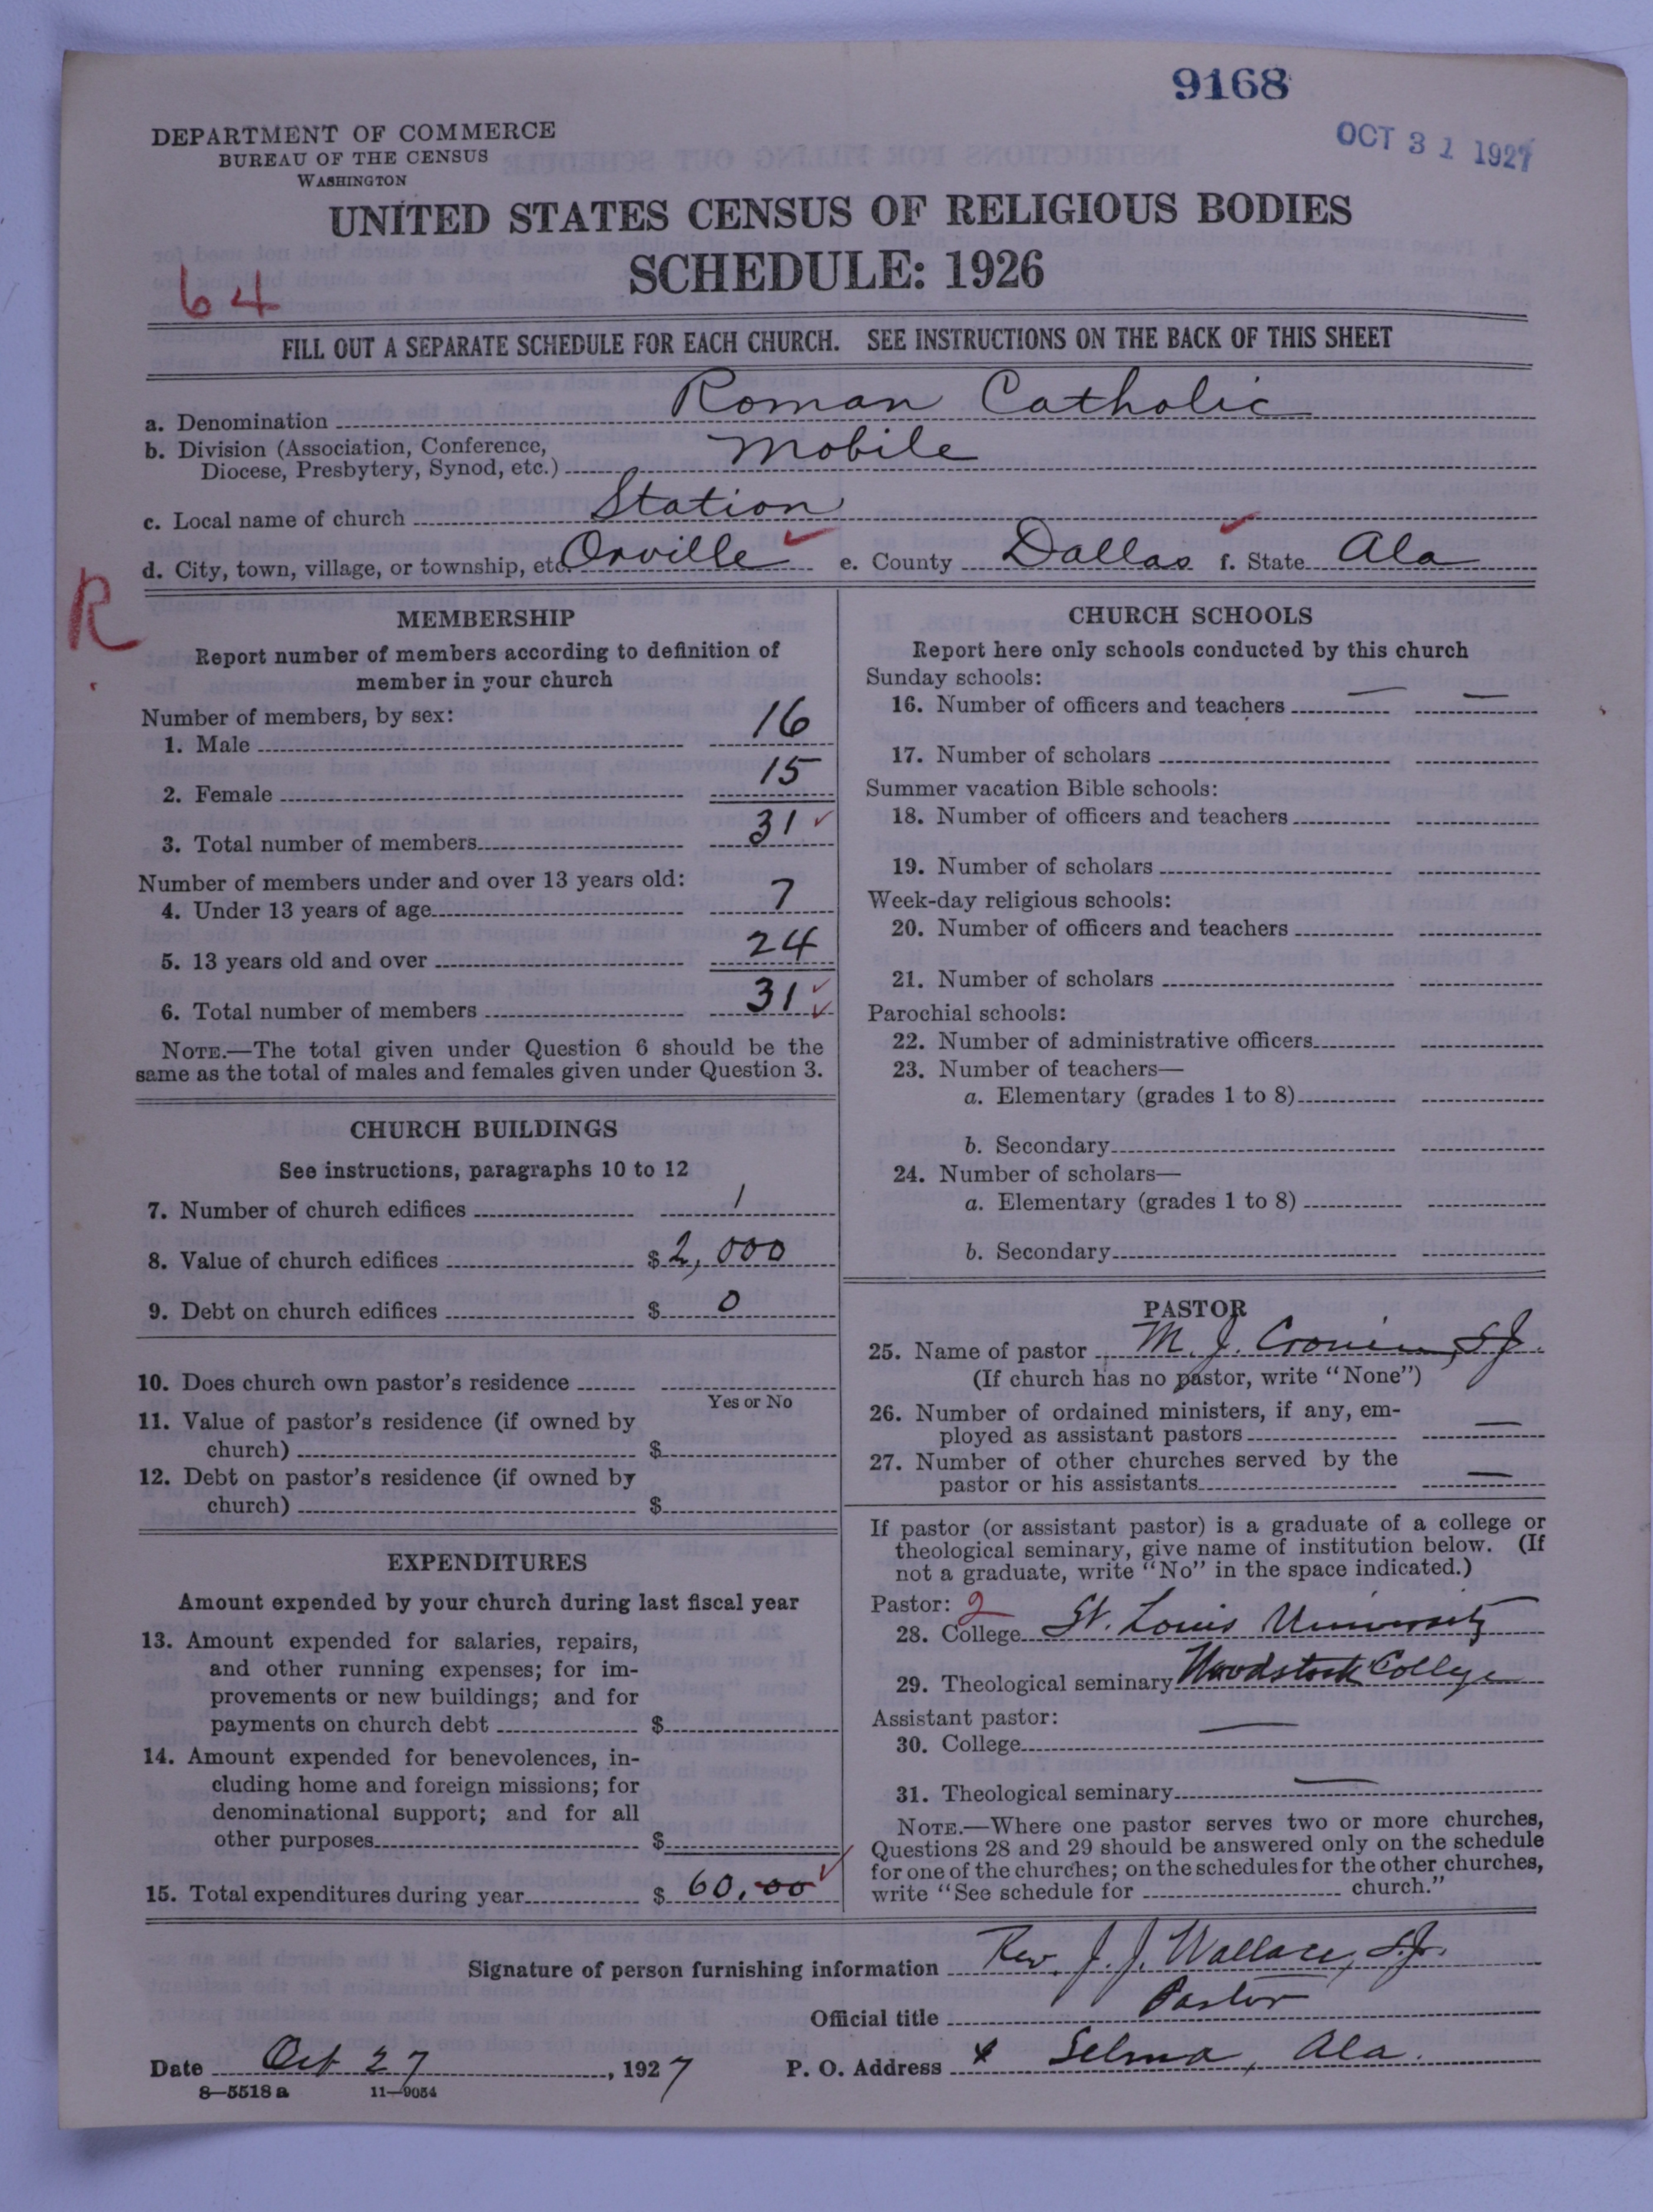 9168
OCT 31 1927
DEPARTMENT OF COMMERCE
BUREAU OF THE CENSUS
WASHINGTON
UNITED STATES CENSUS OF RELIGIOUS BODIES
SCHEDULE: 1926
64
FILL OUT A SEPARATE SCHEDULE FOR EACH CHURCH. SEE INSTRUCTIONS ON THE BACK OF THIS SHEET
a. Denomination Roman Catholic
b. Division (Association, Conference,
Diocese, Presbytery, Synod, etc.) Mobile
c. Local name of church Station
d. City, town, village, or township, etc. Orville e. County Dallas f. State Ala
R
MEMBERSHIP
Report number of members according to definition of
member in your church
Number of members, by sex:
1. Male 16
2. Female 15
3. Total number of members 31
Number of members under and over 13 years old:
4. Under 13 years of age 7
5. 13 years old and over 24
6. Total number of members 31
NOTE.—The total given under Question 6 should be the
same as the total of males and females given under Question 3.
CHURCH BUILDINGS
See instructions, paragraphs 10 to 12
7. Number of church edifices 1
8. Value of church edifices $ 2,000
9. Debt on church edifices $ 0
10. Does church own pastor's residence
Yes or No
11. Value of pastor's residence (if owned by
church) $
12. Debt on pastor's residence (if owned by
church) $
EXPENDITURES
Amount expended by your church during last fiscal year
13. Amount expended for salaries, repairs,
and other running expenses; for im-
provements or new buildings; and for
payments on church debt $
14. Amount expended for benevolences, in-
cluding home and foreign missions; for
denominational support; and for all
other purposes $
15. Total expenditures during year $ 60.00
CHURCH SCHOOLS
Report here only schools conducted by this church
Sunday schools:
16. Number of officers and teachers — —
17. Number of scholars
Summer vacation Bible schools:
18. Number of officers and teachers
19. Number of scholars
Week-day religious schools:
20. Number of officers and teachers
21. Number of scholars
Parochial schools:
22. Number of administrative officers
23. Number of teachers—
a. Elementary (grades 1 to 8)
b. Secondary
24. Number of scholars—
a. Elementary (grades 1 to 8)
b. Secondary
PASTOR
25. Name of pastor M. J. Cronin, S.J.
(If church has no pastor, write "None")
26. Number of ordained ministers, if any, em-
ployed as assistant pastors —
27. Number of other churches served by the
pastor or his assistants —
If pastor (or assistant pastor) is a graduate of a college or
theological seminary, give name of institution below. (If
not a graduate, write "No" in the space indicated.)
Pastor: 2
28. College St. Louis University
29. Theological seminary Woodstock College
Assistant pastor:
30. College —
31. Theological seminary —
NOTE.—Where one pastor serves two or more churches,
Questions 28 and 29 should be answered only on the schedule
for one of the churches; on the schedules for the other churches,
write "See schedule for church."
Signature of person furnishing information Rev. J. J. Wallace, S.J.
Official title Pastor
Date Oct 27, 1927 P. O. Address x Selma, Ala.
8—5518a 11—9054